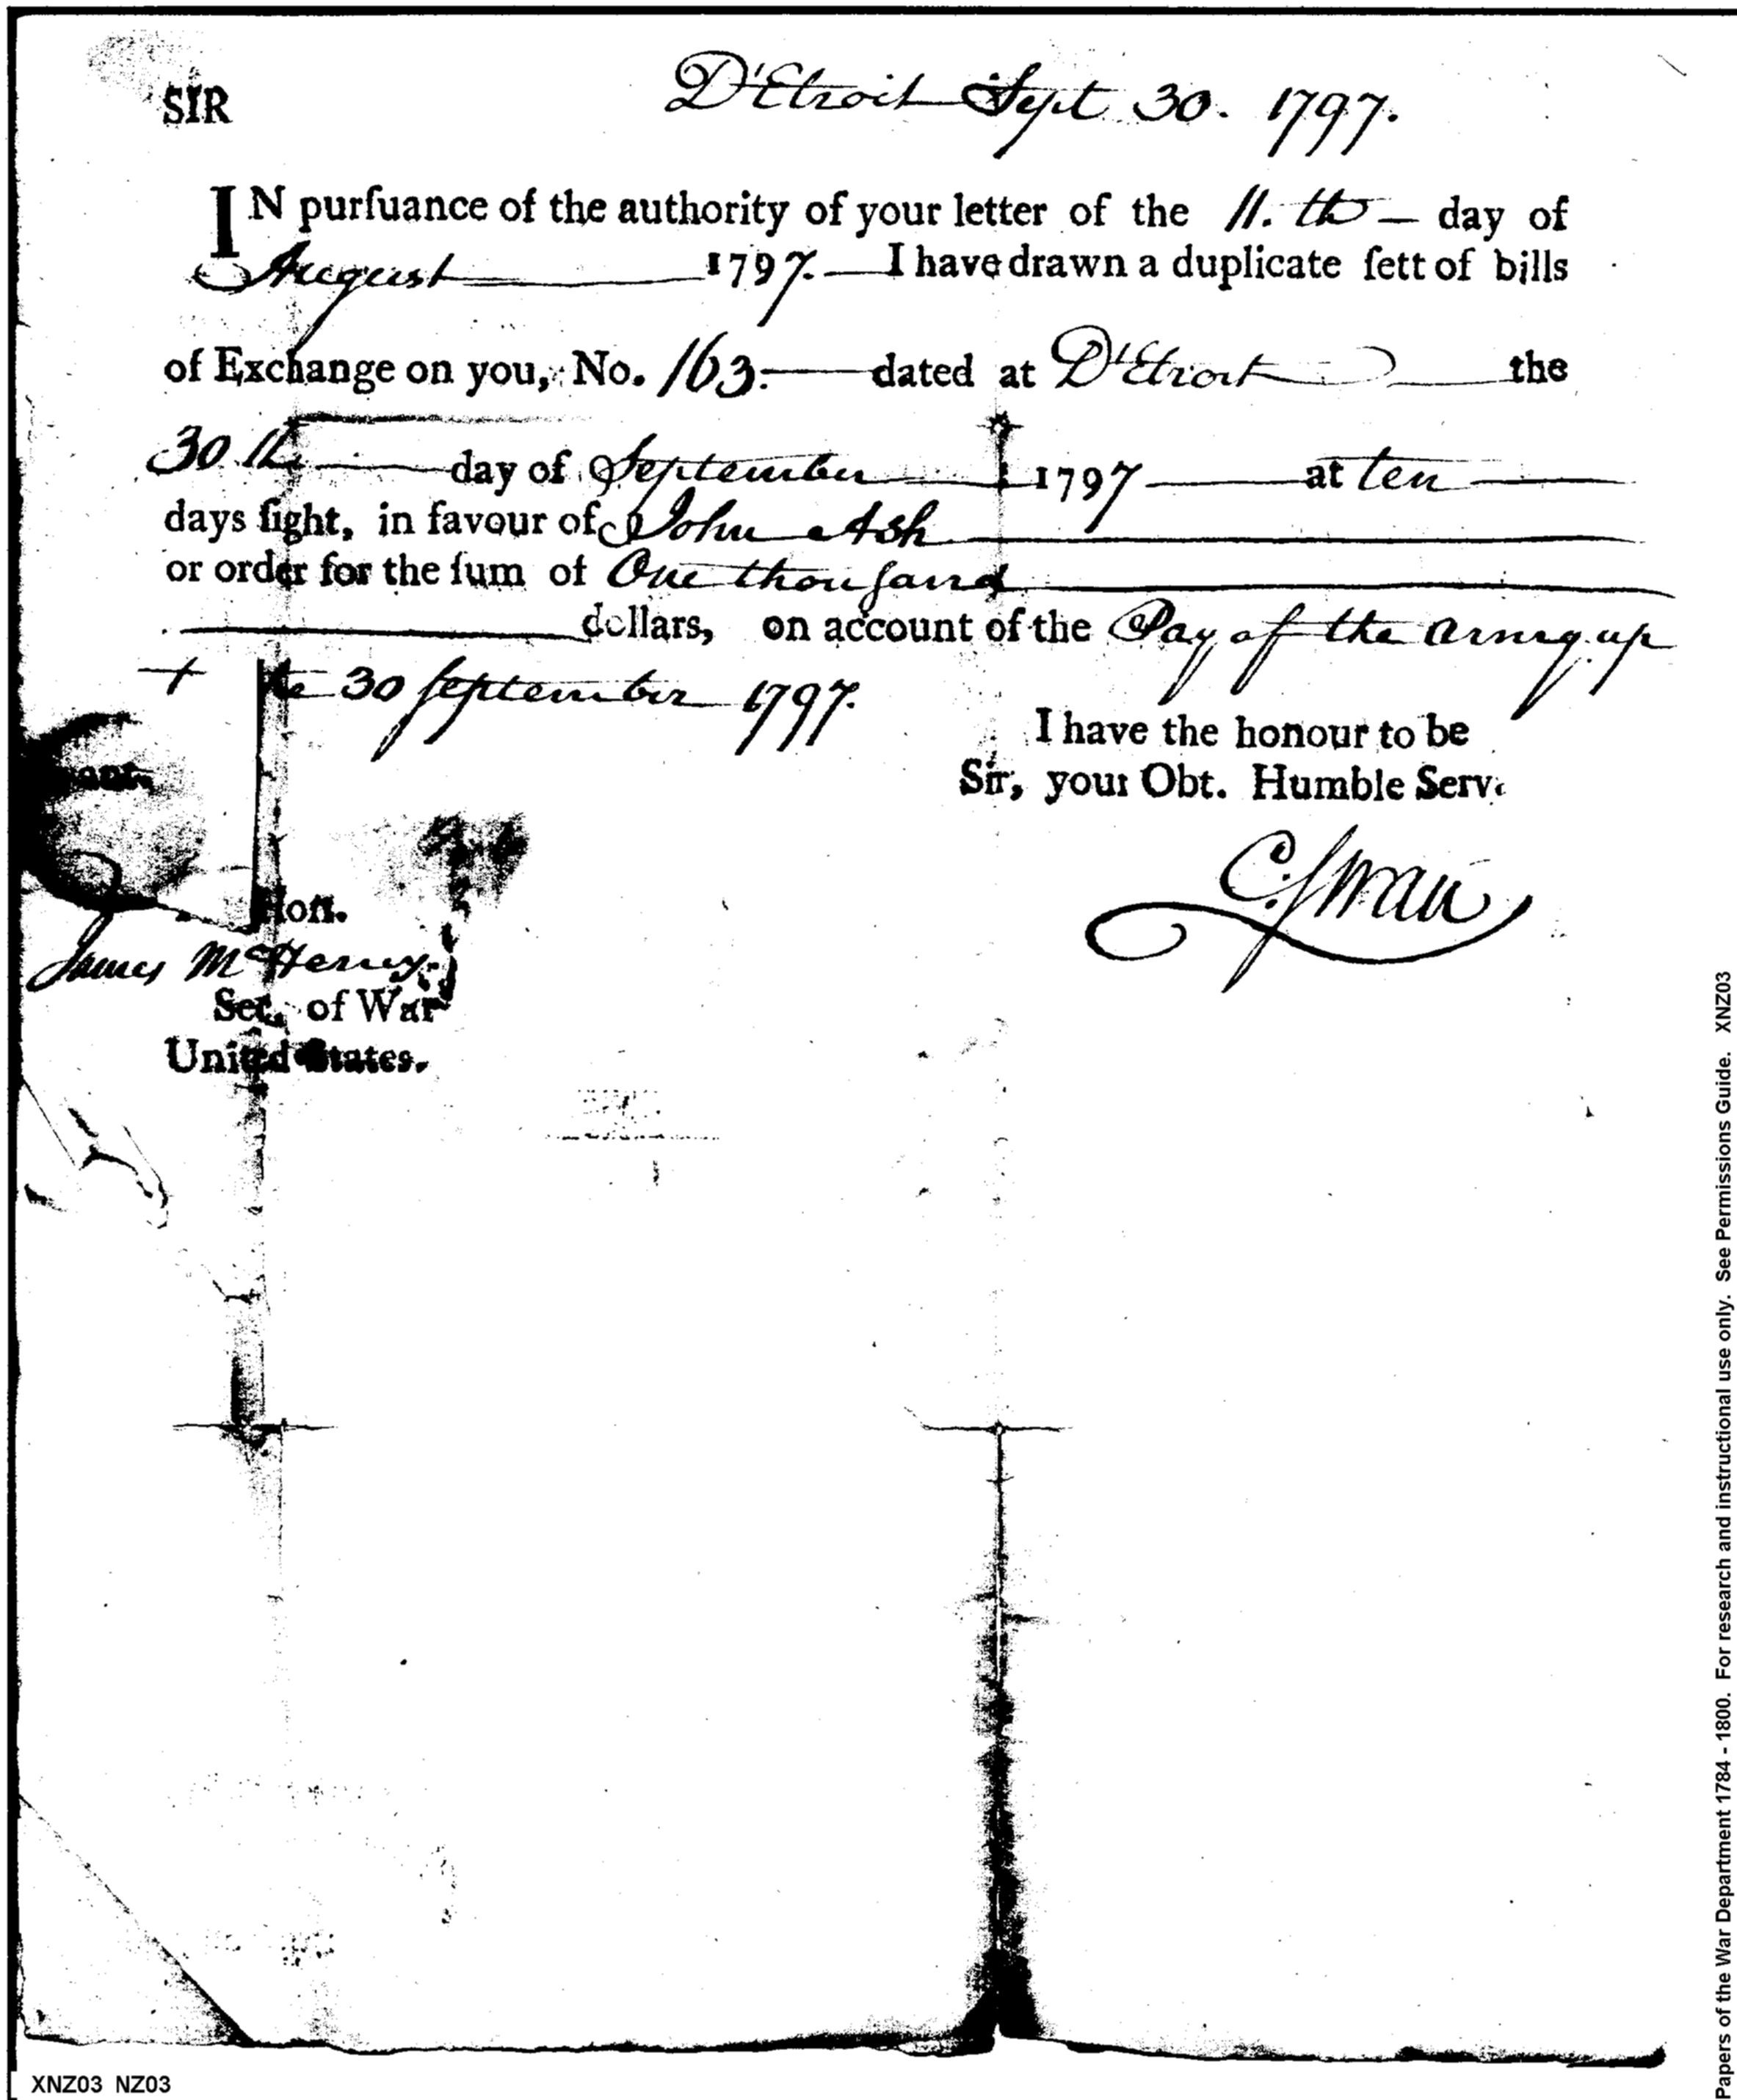 D'Etroit Sept 30. 1797.
SIR
IN purſuance of the authority of your letter of the 11.th — day of
August 1797. — I have drawn a duplicate ſett of bills
of Exchange on you, No. 163. — dated at D'Etroit the
30th day of September 1797 at ten
days ſight, in favour of John Ash
or order for the ſum of One thouſand
dollars, on account of the Pay of the army up
to 30 ſeptember 1797.
I have the honour to be
Sir, your Obt. Humble Serv.
C. Swan
Hon.
James McHenry
Sec. of War
United States.
XNZ03 NZ03
Papers of the War Department 1784 - 1800. For research and instructional use only. See Permissions Guide. XNZ03